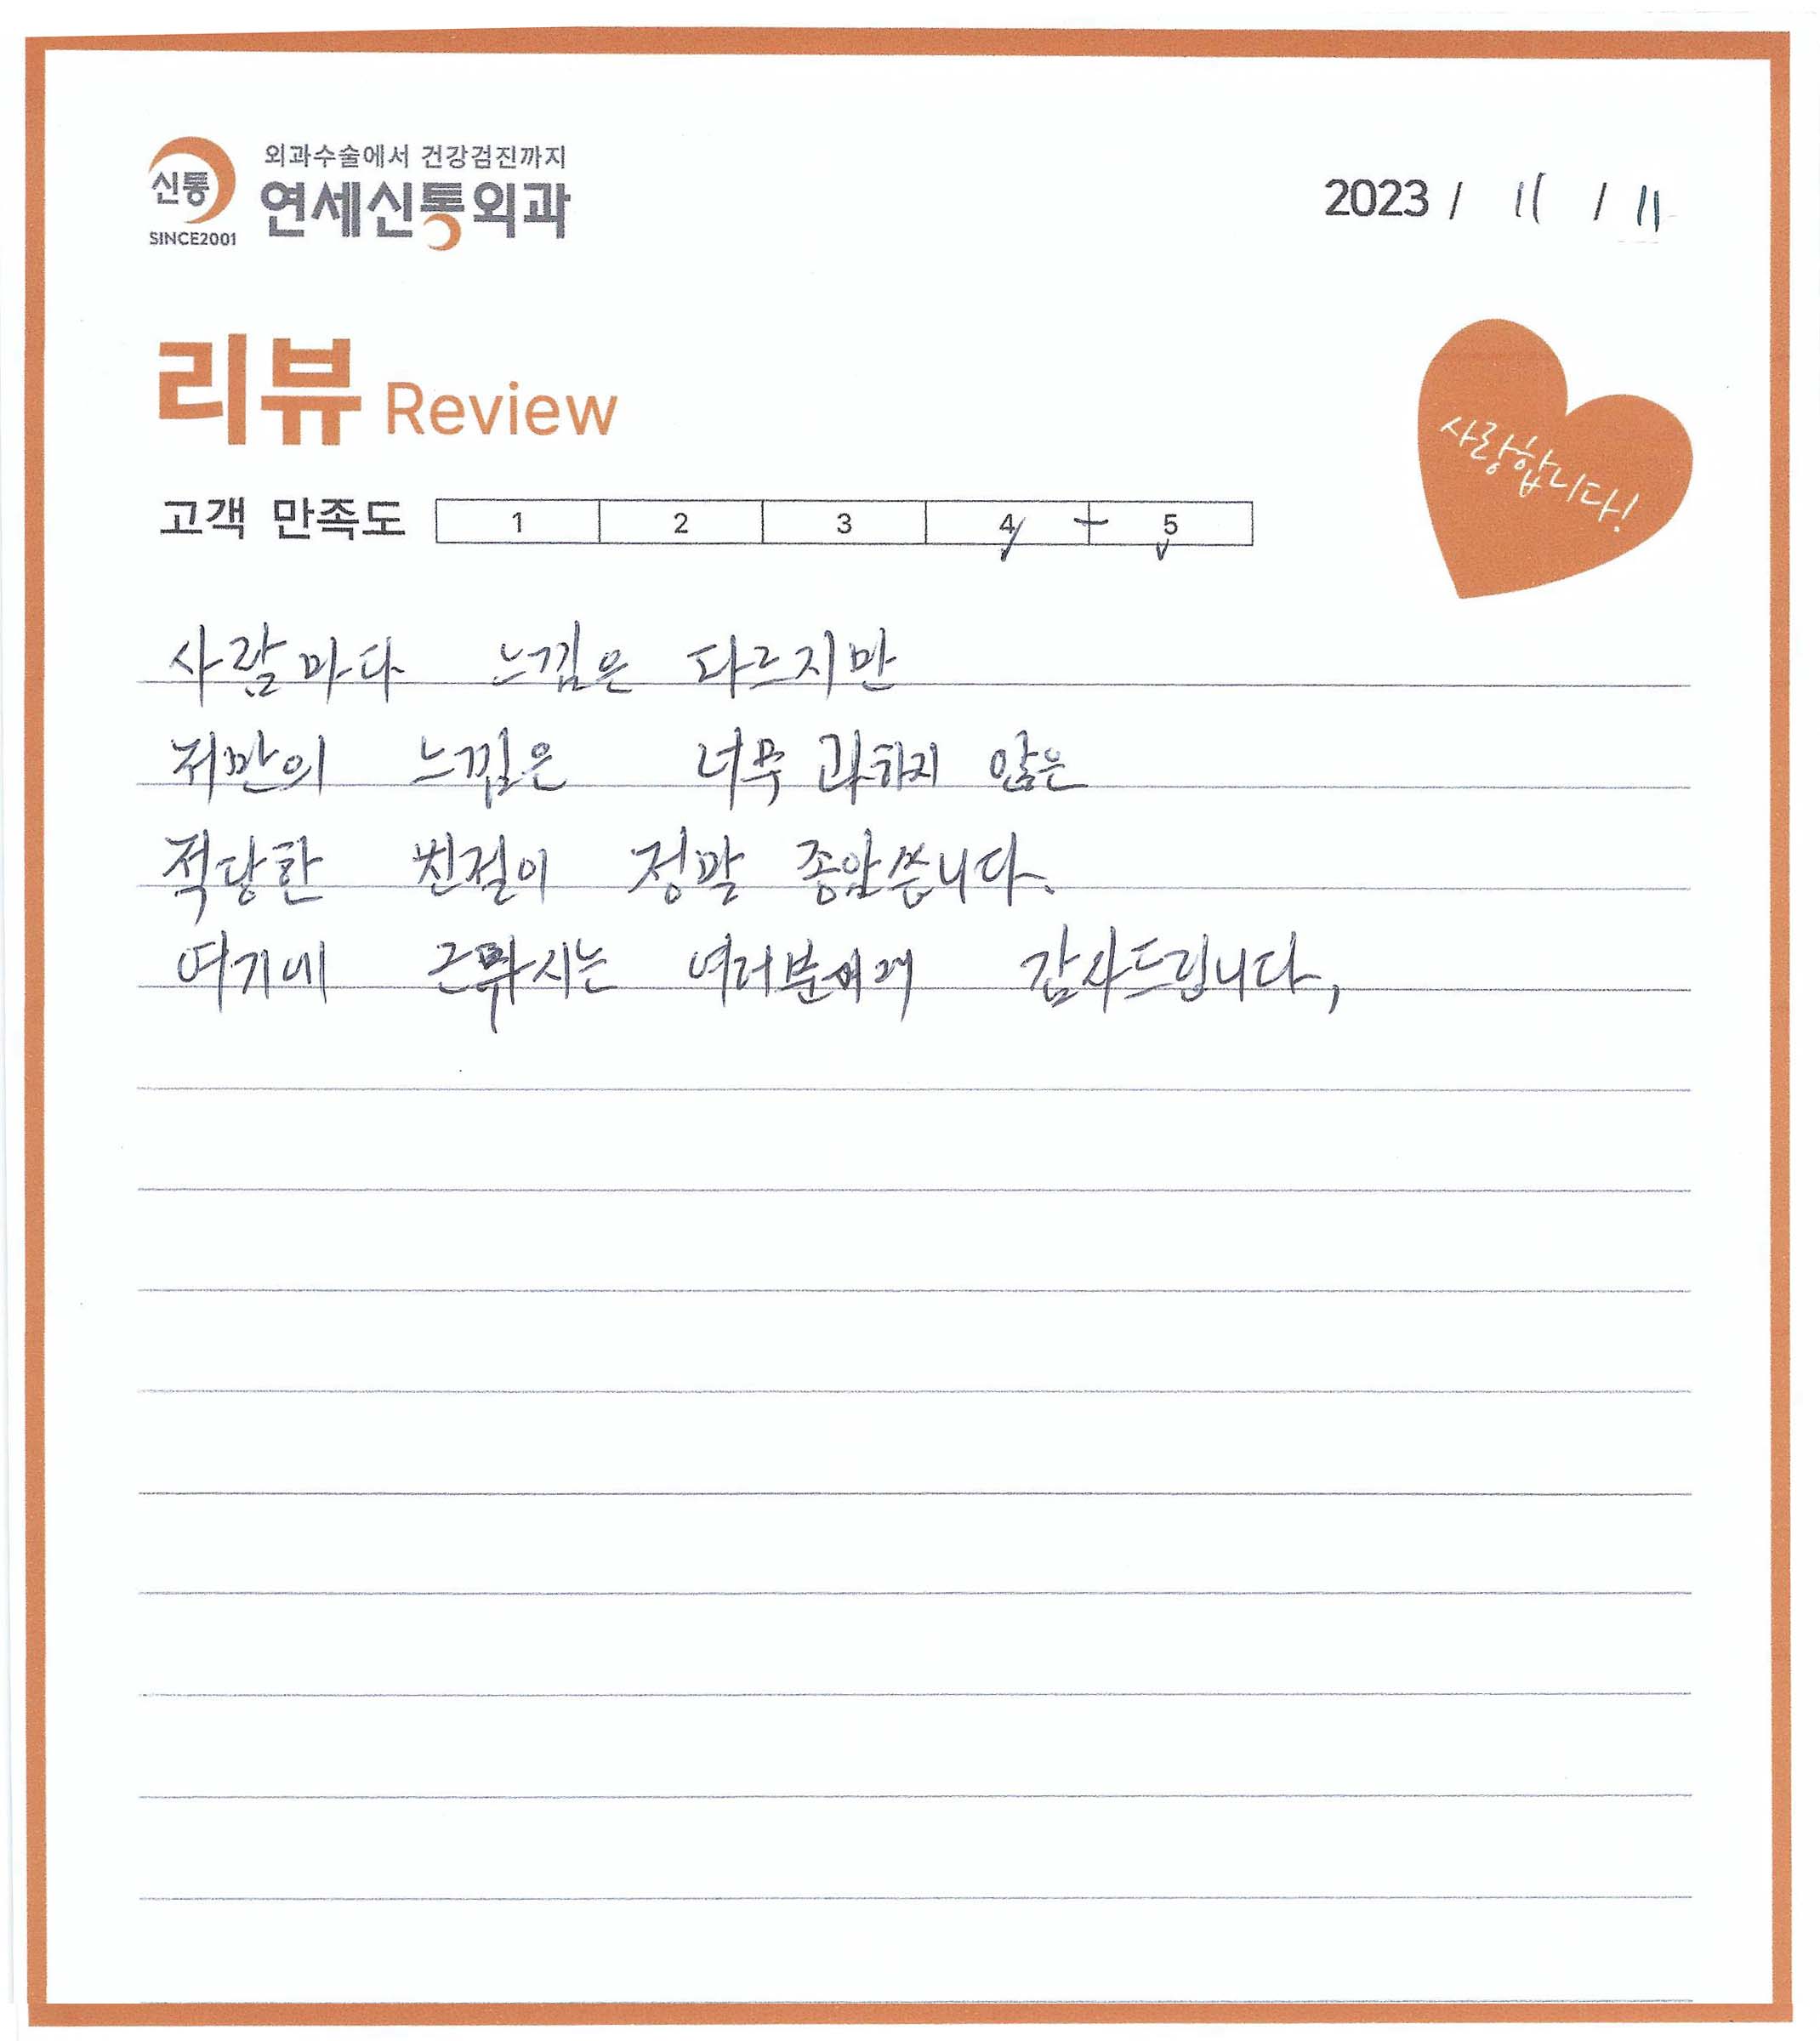 외과수술에서 건강검진까지
신통 연세신통외과
SINCE2001
2023 / 11 / 11
리뷰 Review
사랑합니다!
고객 만족도 1 2 3 4 5
사람마다 느낌은 다르지만
저만의 느낌은 너무 과하지 않은
적당한 친절이 정말 좋았씁니다.
여기에 시는 여러분에게 감사드립니다,